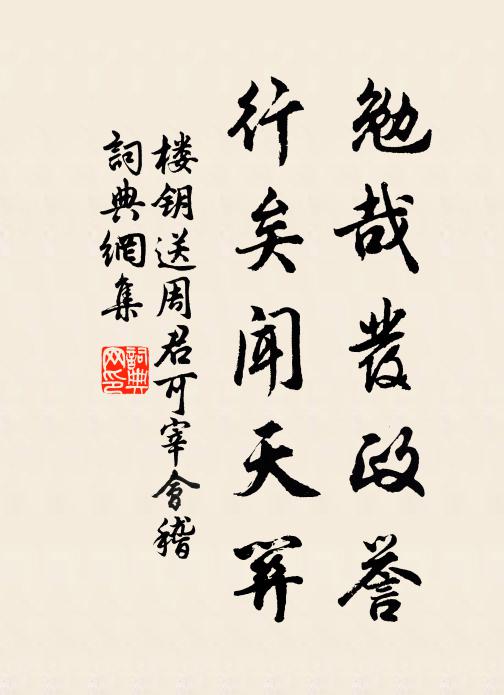 勉哉發政誉
行矣聞天
楼钥送周君可宰會稽
詞典網集
詞典网印